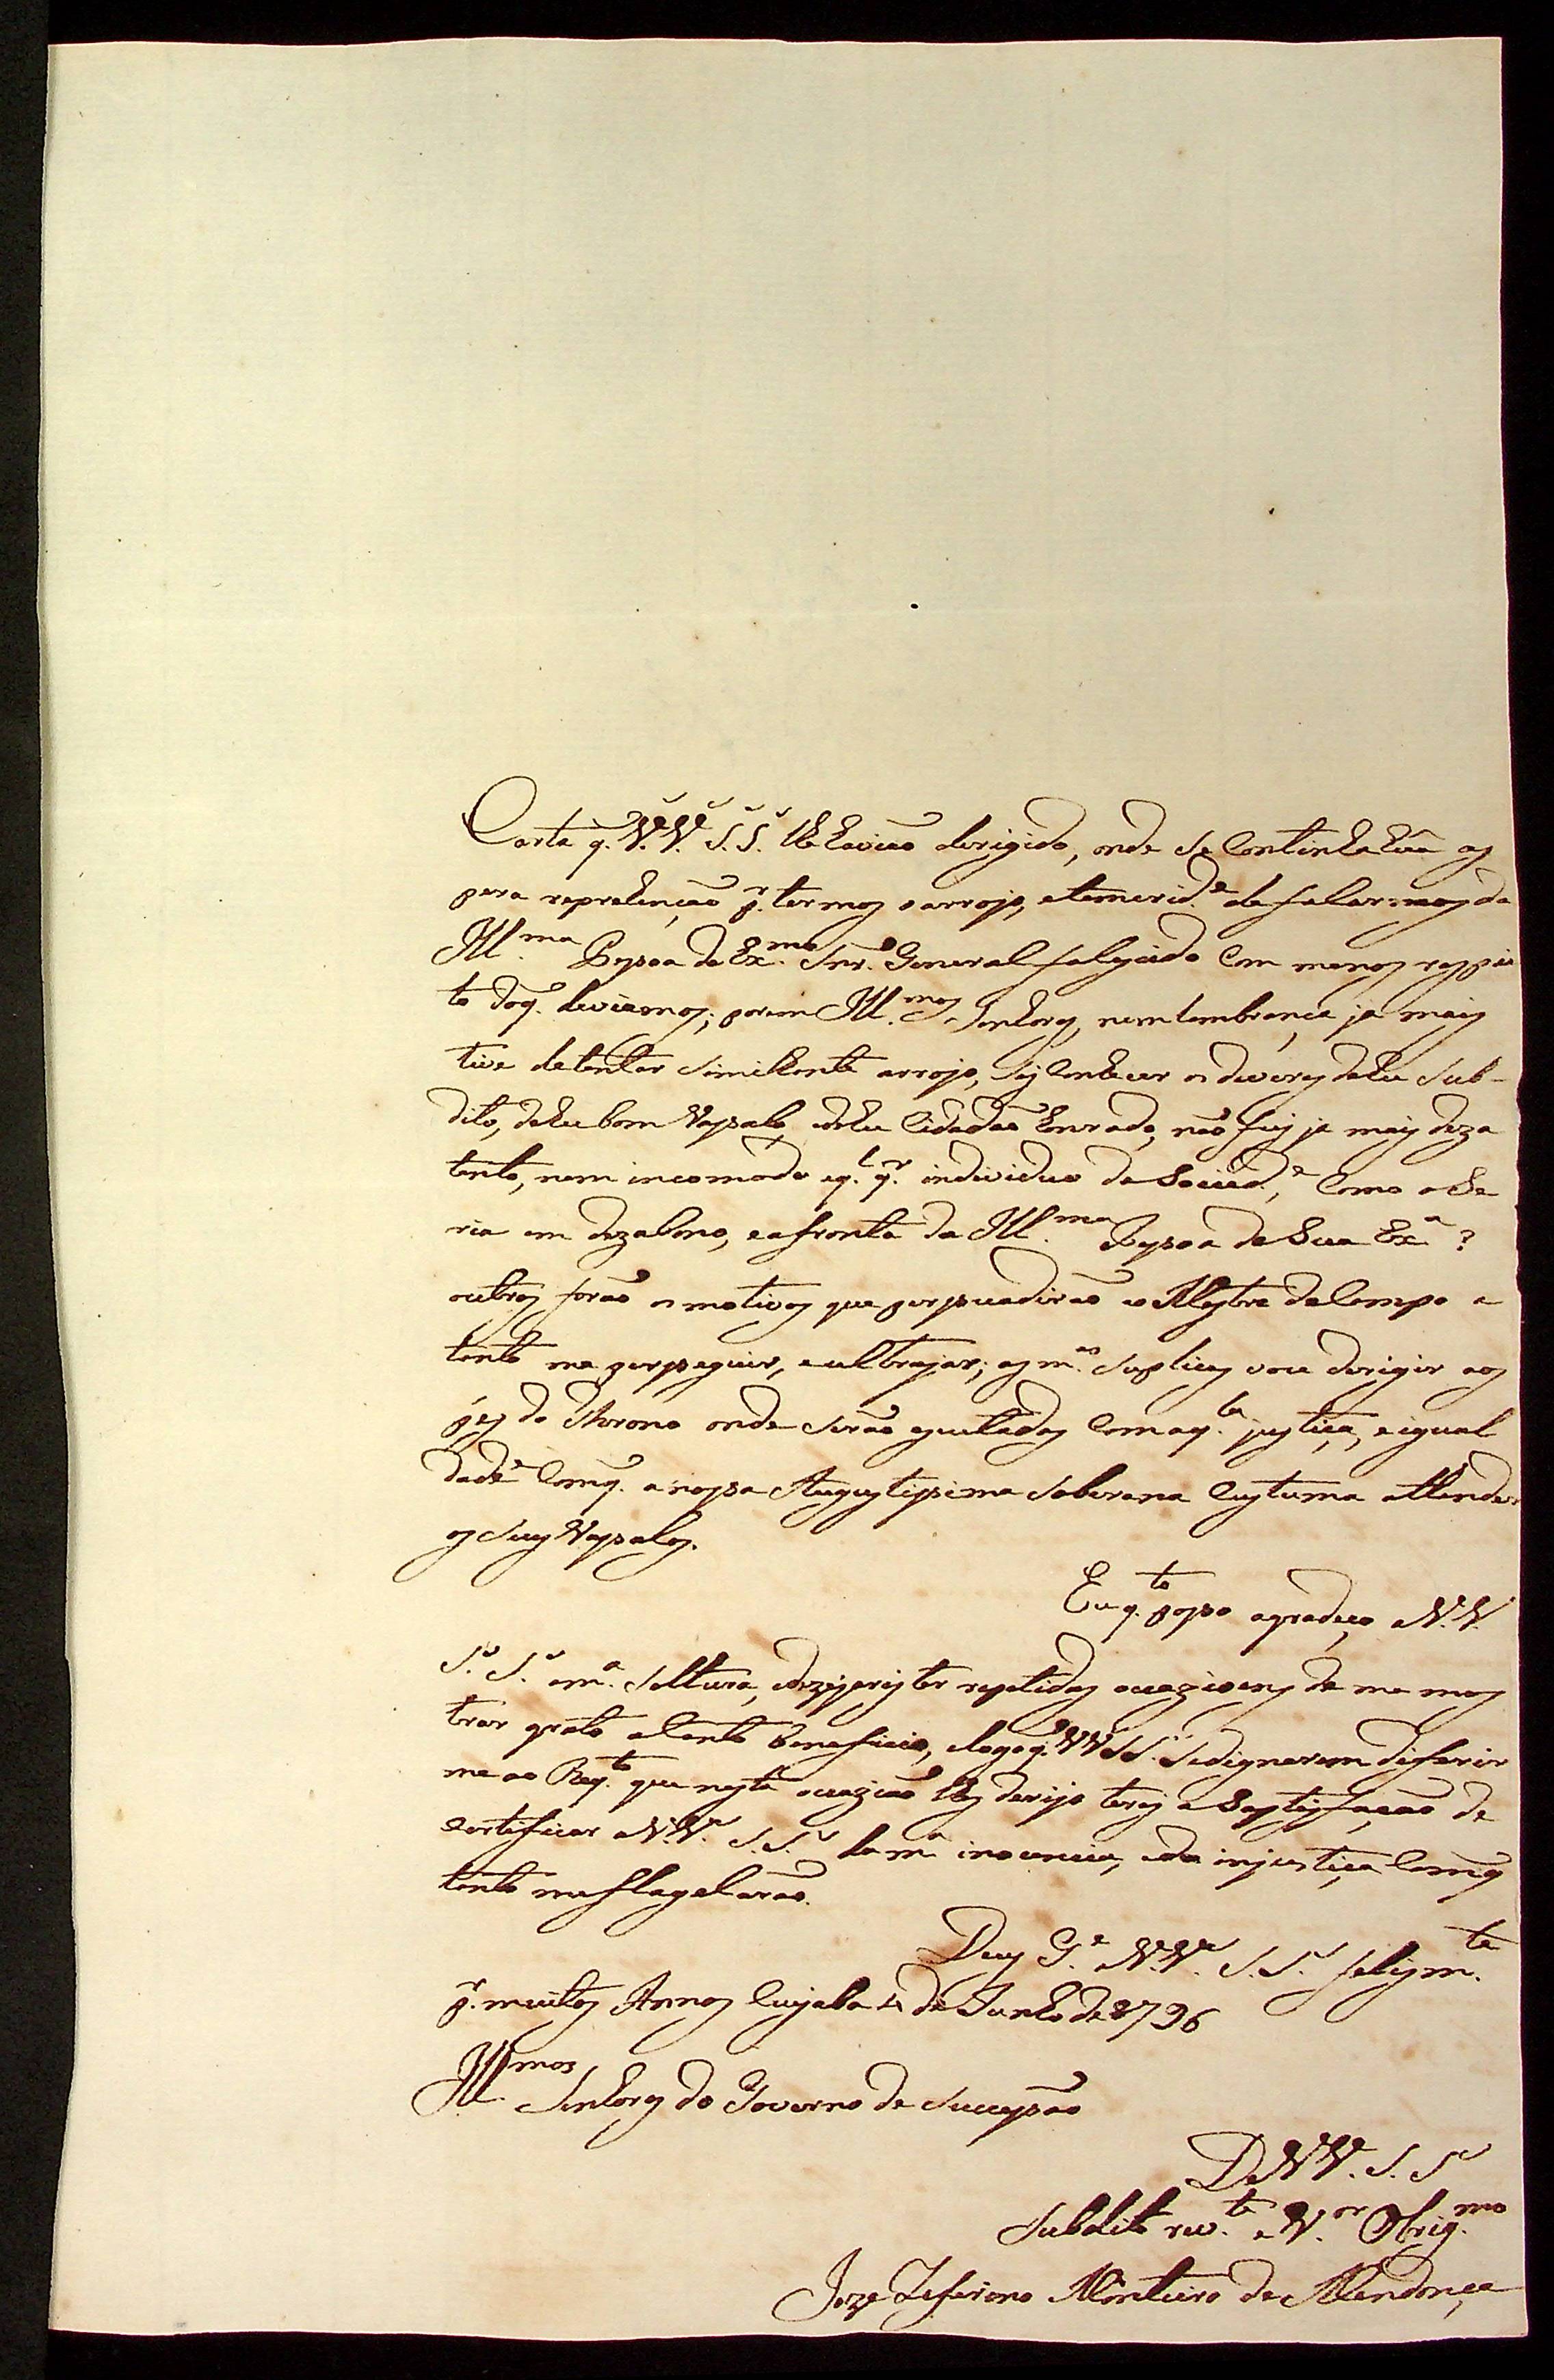 Carta q. V.V. S.S. lhe havião dirigido, onde se continha huã as
pera reprehenção pr. termos o arrojo, e temerid.e de falarmos da
Ill.ma Pessoa do Ex.mo Snr. General falescido com menos respei
to doq. deviamos; porem Ill.mos Senhores, nem lembrança ja mais
tive de tentar similhante arrojo, sei conhecer os deveres de hu sub-
dito, de hu bom Vassalo, e de hu Cidadão honrado, não fuy ja mais deza
tento, nem incomodo a q.l q.r individuo da Socied.e, como o se
ria em dezabono, e afronta da Ill.ma Pessoa de Sua Ex.a ?
outros forão os motivos que perssuadirão ao Mestre de Campo a
tanto me persseguir, e ultrajar; as m.as suplicas vou dirigir aos
pes do Throno onde serão escutadas com aq.la justiça, e igual
dade com q. a nossa Augustissima Soberana custuma attender
os seus Vassalos.
Eu q.to posso agradeço a V.V.
S.S. a m.a soltura, e dezejarei ter repetidas ocazioens de me mos
trar grato a tanto beneficio, e logo q. VV SS. se dignarem diferir
me ao Req.to que nesta ocazião lhes derijo terei a Satisfação de
certificar a V.V. S.S. da m.a inocencia, e da injustiça com q
tanto me flagelarão.
Deus G.e a V.V. S.S. felism.te
pr. muitos Annos Cuyaba 4 de Junho de 1796
Ill.mos Senhores do Governo de Sucessão
De VV. S.S
Subdito rev.te e V.or Obrig.mo
Joze Zeferino Monteiro de Mendonça